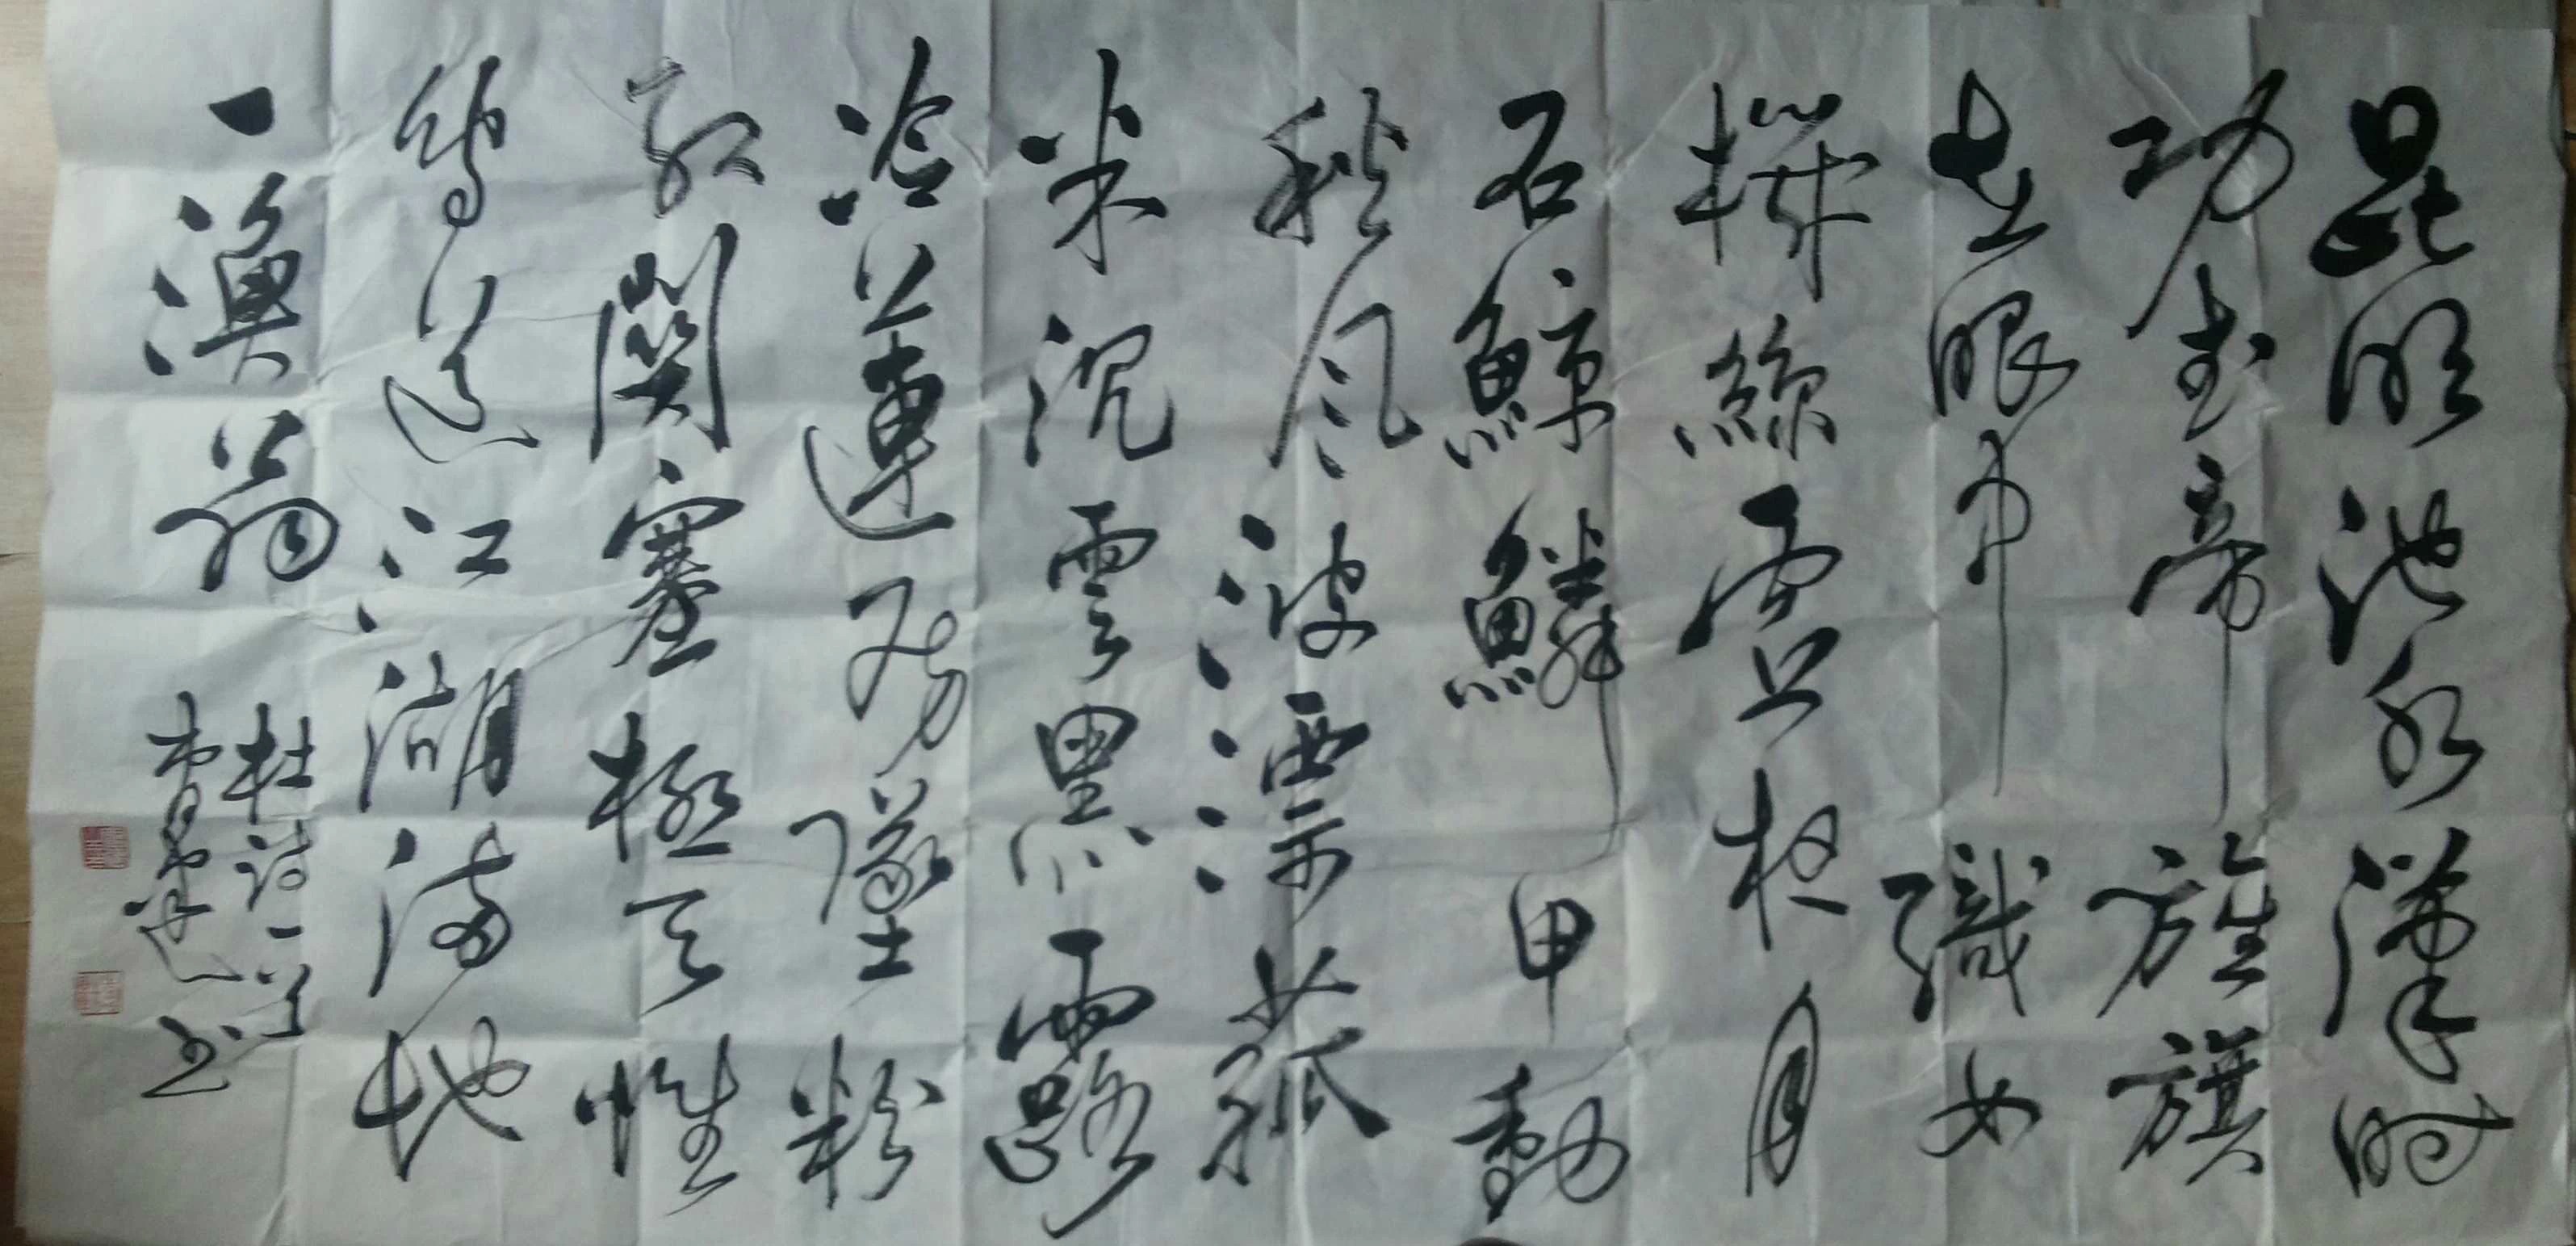 昆明池水漢时
功武帝旌旗
在眼中織女
機絲虛夜月
石鯨鱗甲動
秋风波漂菰
米沉雲黑露
冷蓮房墜粉
紅關塞極天惟
鳥道江湖滿地
一漁翁
杜詩一首
书